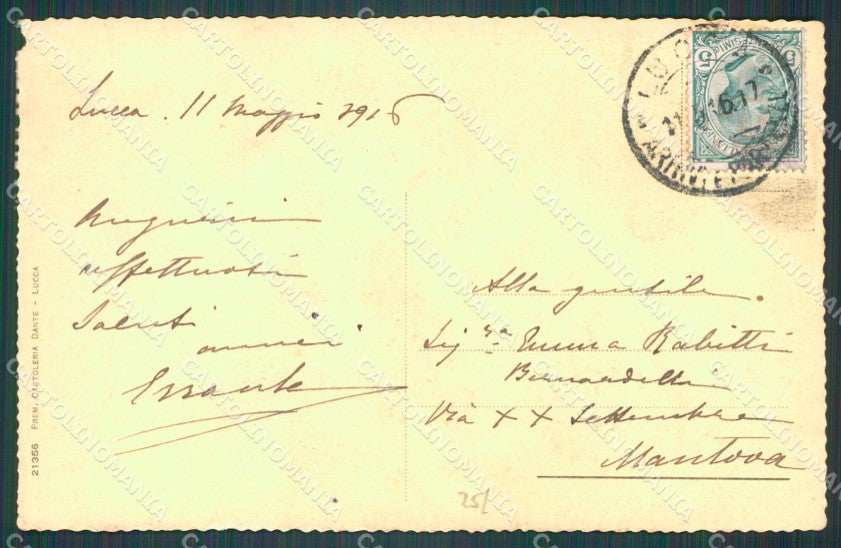 Lucca. 11 Maggio 1916
Auguri
affettuosi
saluti
Alla gentile
Sig.ra Emma Rabitti
Bernardelli
Via XX Settembre
Mantova
25/
21356 PREM. CARTOLERIA DANTE - LUCCA
LUCCA
ARRIVI E PARTENZE
5
CARTOLINOMANIA